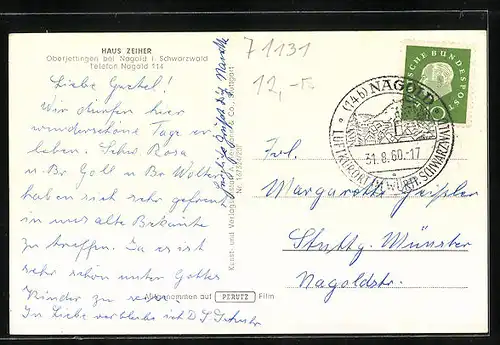 HAUS ZEIHER
Oberjettingen bei Nagold i. Schwarzwald
Telefon Nagold 114
71131
12,-
Liebe
Wir dürfen hier
wunderschöne Tage er-
leben. Schw. Rosa
u. Br. Goll u. Br. Wolter
haben sich sehr gefreut
uns alte Bekannte
zu treffen. Ja es ist
sehr schön unter Gottes
Kinder zu sein
In Liebe verbleibe ich
Aufgenommen auf PERUTZ Film
Kunst- und Verlags & Co., Stuttgart
DEUTSCHE BUNDESPOST
10
(14b) NAGOLD
31.8.60.-17
LUFTKURORT I. WÜRTT. SCHWARZWALD
Frl.
Margarethe Geißler
Stuttg. Münster
Nagoldstr.